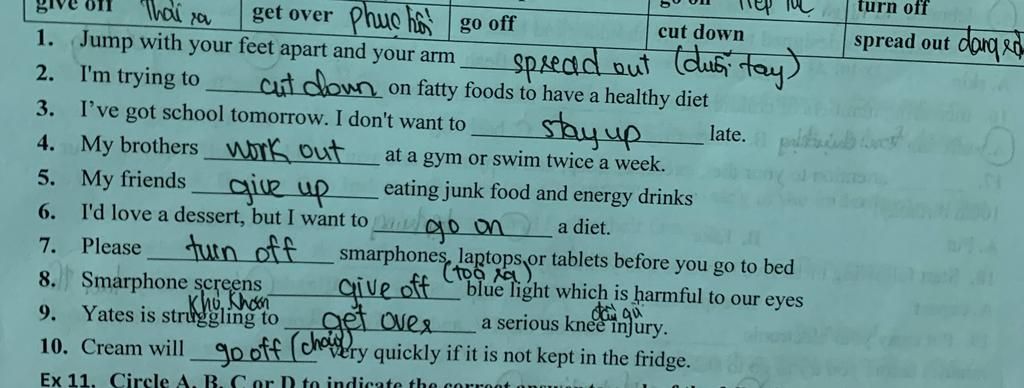 give off Thải ra get over phục hồi go off go on Tiếp tục cut down turn off spread out dang rộng
1. Jump with your feet apart and your arm spread out (duỗi tay)
2. I'm trying to cut down on fatty foods to have a healthy diet
3. I've got school tomorrow. I don't want to stay up late.
4. My brothers work out at a gym or swim twice a week.
5. My friends give up eating junk food and energy drinks
6. I'd love a dessert, but I want to go on a diet.
7. Please turn off smarphones, laptops,or tablets before you go to bed
(toả ra)
8. Smarphone screens give off blue light which is harmful to our eyes
Khó khăn
9. Yates is struggling to get over a serious knee injury.
10. Cream will go off very quickly if it is not kept in the fridge.
Ex 11. Circle A, B, C or D to indicate the correct